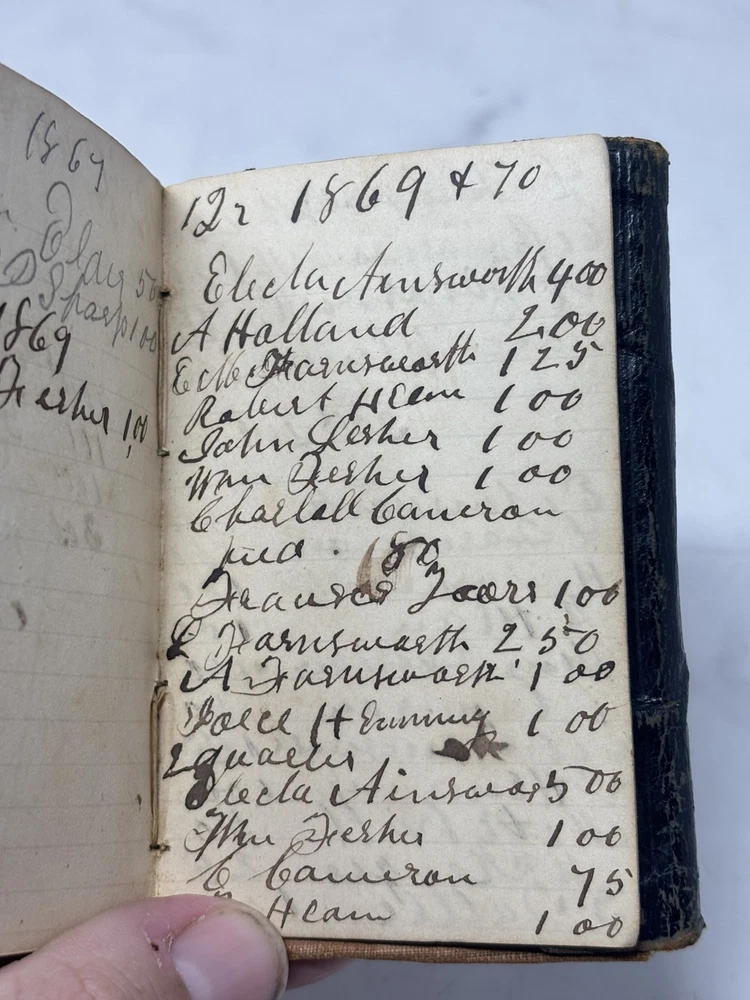 1869
50
D Sharp 100
1869
Fesher 1,00
12r 1869 & 70
Electa Ainsworth 400
A Holland 2,00
E M Farnsworth 1 25
Robert Ham 1 00
John Lesher 1 00
Wm Fesher 1 00
Cameron
pied . 50
1 00
E Farnsworth 2 50
A Farnsworth 1 00
1 00
2 quarter
Electa Ainswor 5 00
Wm Fesher 1 00
C Cameron 75
Ham 1 00